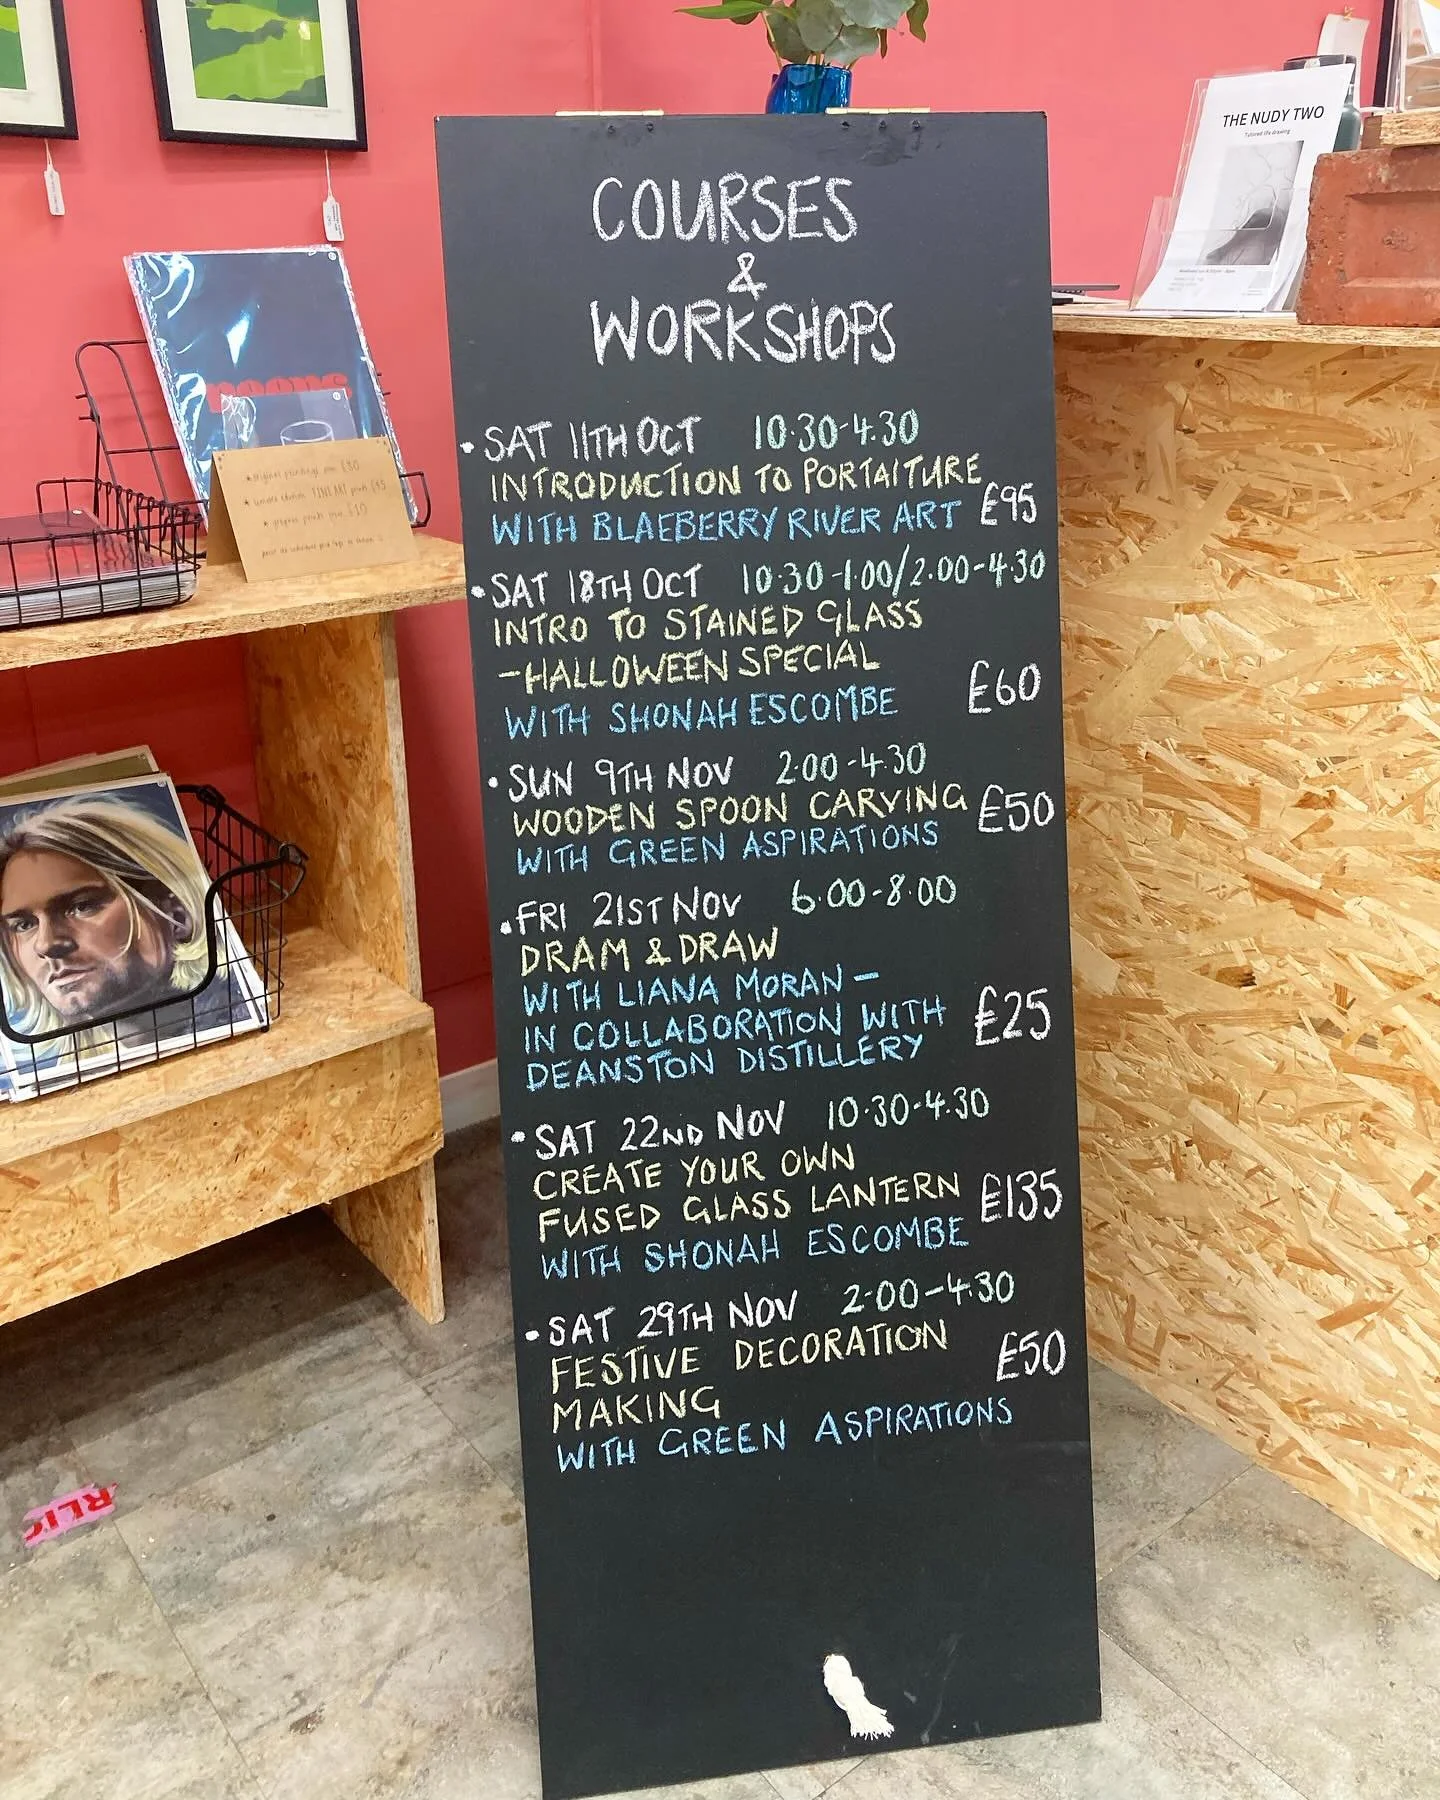 COURSES
&
WORKSHOPS
• SAT 11TH OCT 10·30-4·30
INTRODUCTION TO PORTAITURE
WITH BLAEBERRY RIVER ART £95
• SAT 18TH OCT 10·30-1·00/2·00-4·30
INTRO TO STAINED GLASS
-HALLOWEEN SPECIAL
WITH SHONAH ESCOMBE £60
• SUN 9TH NOV 2·00-4·30
WOODEN SPOON CARVING £50
WITH GREEN ASPIRATIONS
• FRI 21ST NOV 6·00-8·00
DRAM & DRAW
WITH LIANA MORAN -
IN COLLABORATION WITH £25
DEANSTON DISTILLERY
• SAT 22ND NOV 10·30-4·30
CREATE YOUR OWN
FUSED GLASS LANTERN £135
WITH SHONAH ESCOMBE
• SAT 29TH NOV 2·00-4·30
FESTIVE DECORATION £50
MAKING
WITH GREEN ASPIRATIONS
THE NUDY TWO
Tutored life drawing